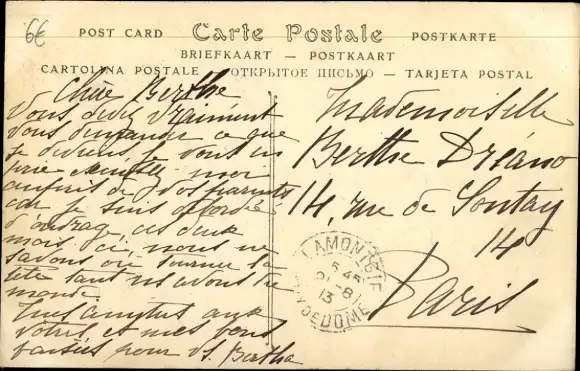 6€
POST CARD Carte Postale POSTKARTE
BRIEFKAART — POSTKAART
CARTOLINA POSTALE — ОТКРЫТОЕ ПИСЬМО — TARJETA POSTAL
Chère Berthe
Vous devez vraiment
vous demander ce que
je deviens, je vous en
prie
auprès de vos parents
car je suis débordée
d'ouvrage, ces deux
mois ci, nous ne
savons où tourner la
tête tant ns avons de
monde.
amitiés aux
votres et mes bons
baisers pour vs. Bertha
Mademoiselle
Berthe Dréano
14, rue de Sontay
14
Paris
LAMONTGIE
5 45
8
13
PUY DE DOME